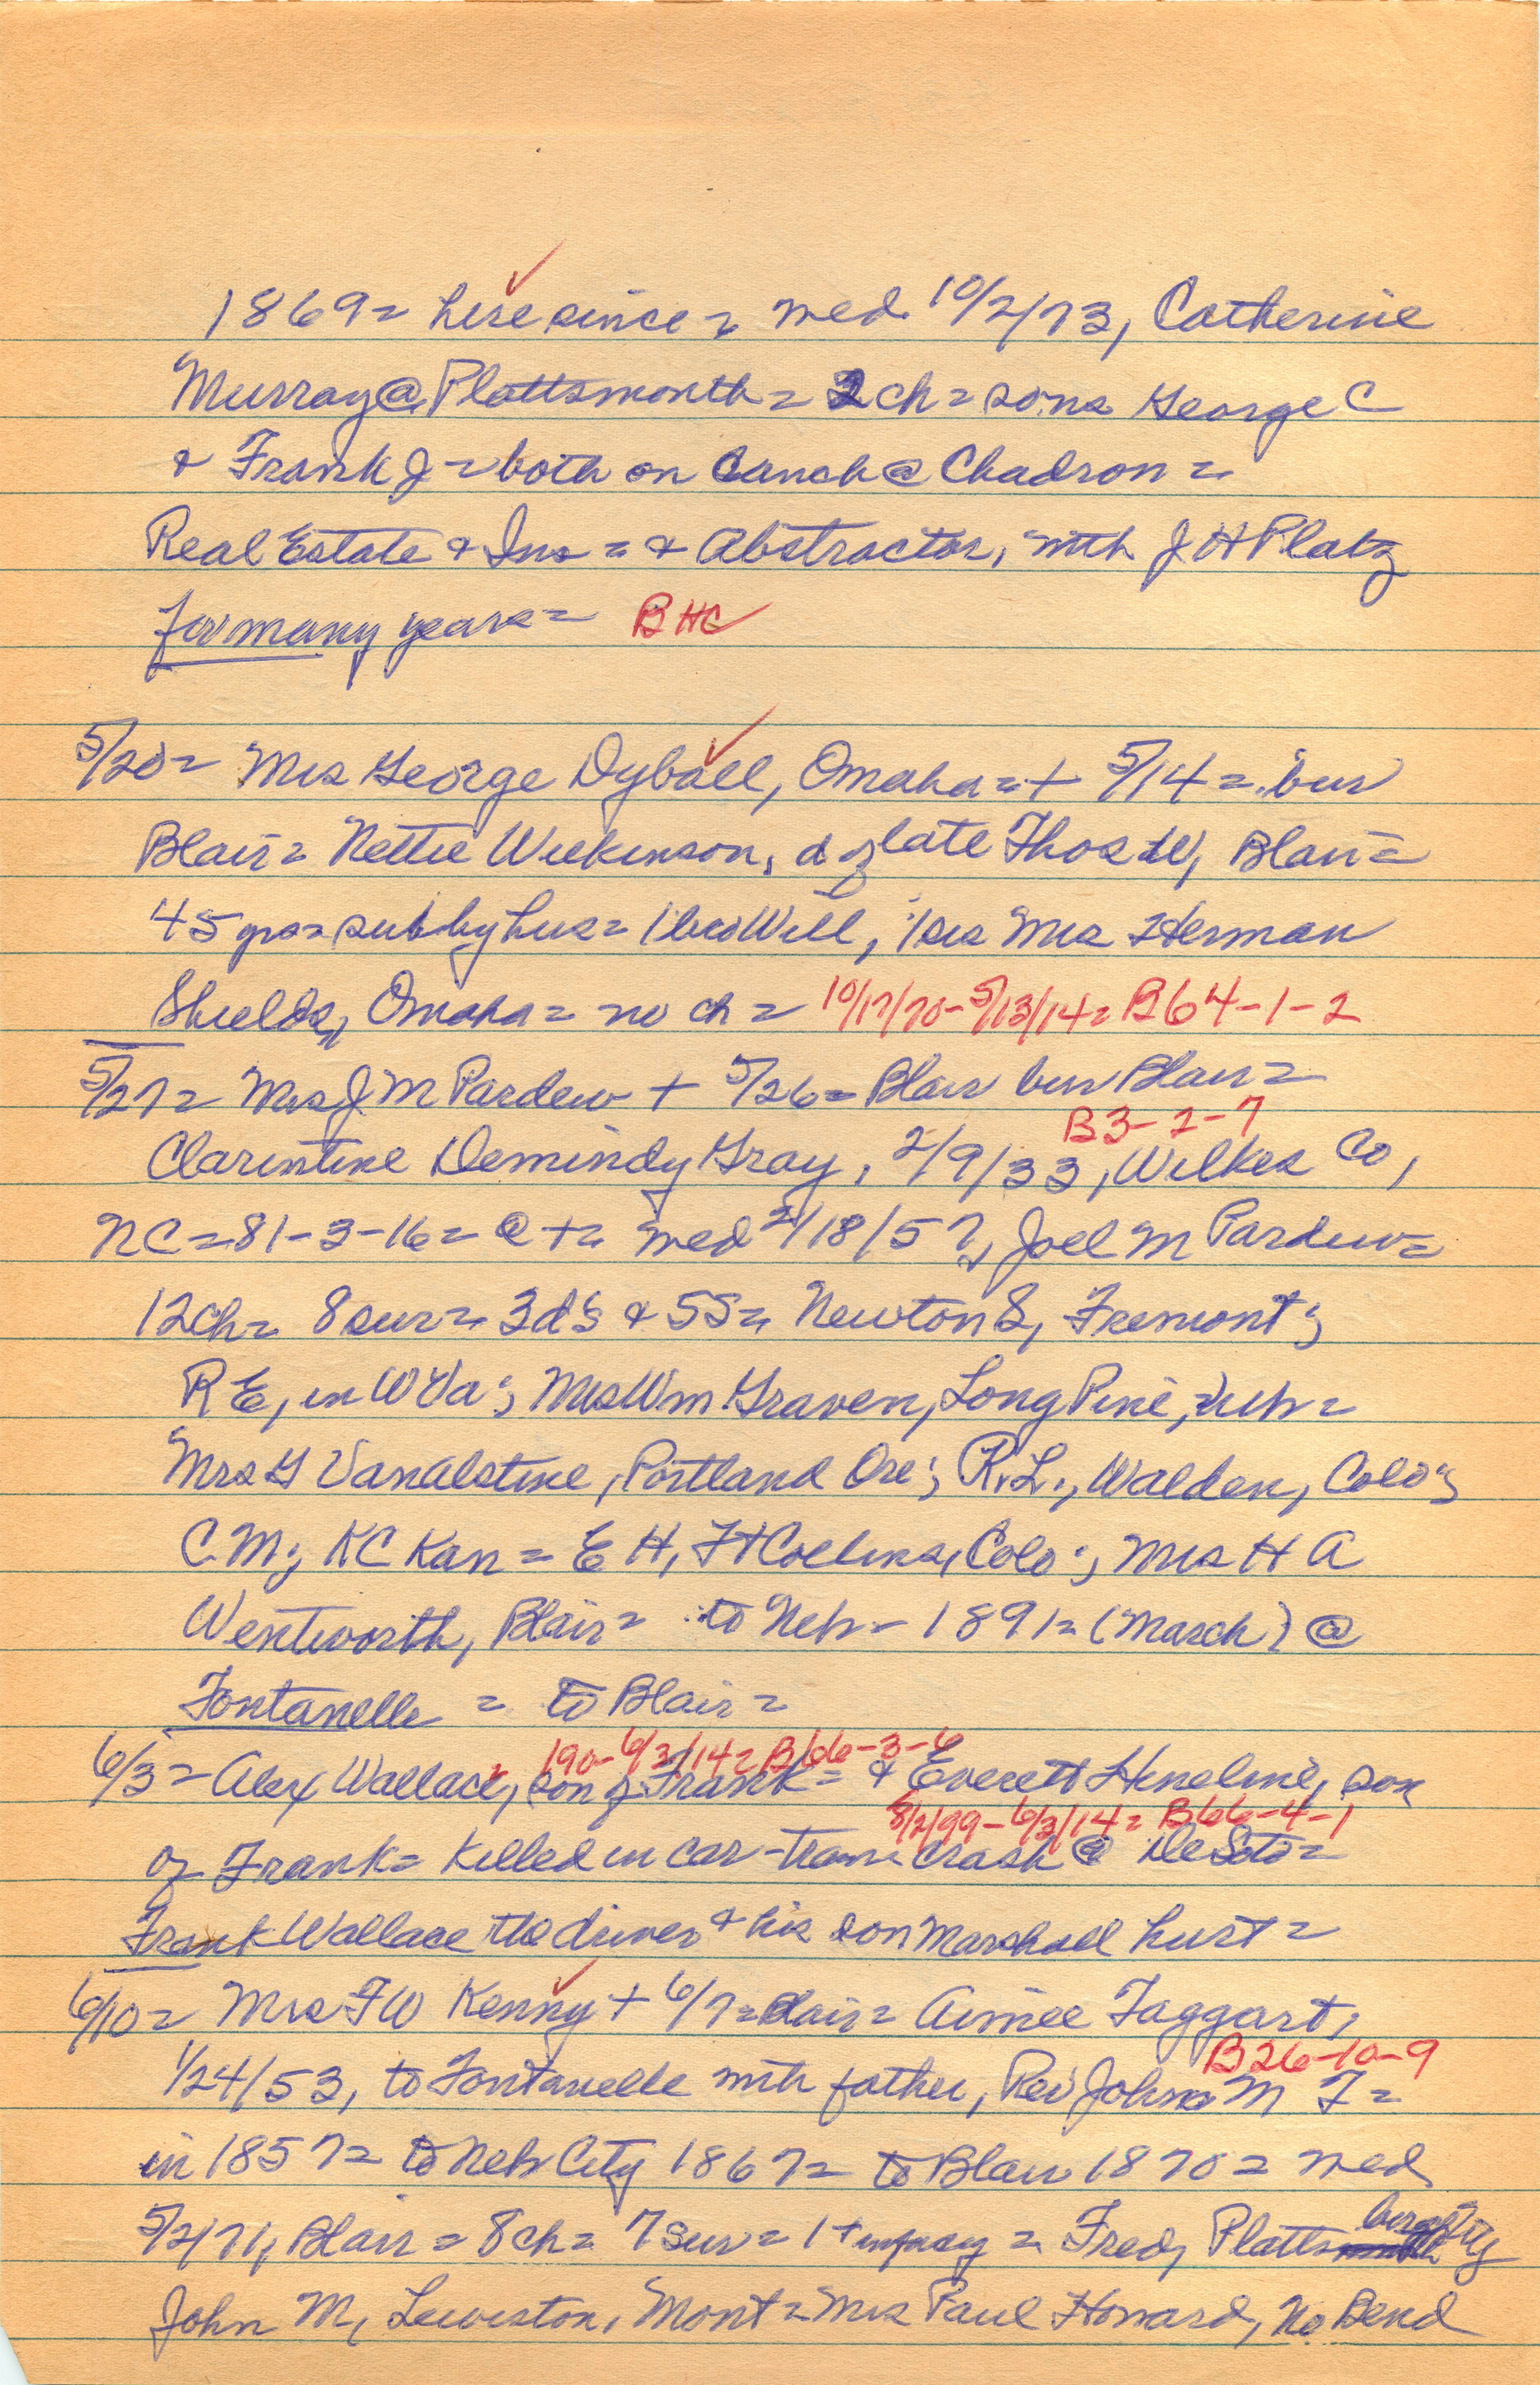 1869= here since = med. 10/2/73, Catherine
Murray @ Plattsmouth = 2 ch = sons George C
& Frank J = both on ranch @ Chadron =
Real Estate & Ins = & Abstractor, with J H Platz
for many years = BHC
5/20 = Mrs George Dyball, Omaha = + 5/14 = bur
Blair = Nettie Wilkinson, d of late Thos W, Blair =
45 yrs = sub by hus = 1 bro Will, 1 sis Mrs Herman
Shields, Omaha = no ch = 10/17/70-5/13/14 = B64-1-2
5/27 = Mrs J M Pardew + 5/26 = Blair bur Blair =
B3-2-7
Clarintine Demindy Gray, 2/9/33, Wilkes Co,
NC = 81-3-16 = @ + = med 2/18/57, Joel M Pardew =
12 ch = 8 sur = 3 d's & 5 S = Newton S, Fremont;
R E, in W Va; Mrs Wm Graven, Long Pine, Neb =
Mrs G Vanalstine, Portland Ore; R. L., Walden, Colo;
C. M; KC Kan = E H, Ft Collins, Colo; Mrs H A
Wentworth, Blair = to Neb - 1891 = (March) @
Fontanelle = to Blair =
190-6/3/14 = B66-3-6
6/3 = Alex Wallace, son of Frank = & Everett Heneline, son
8/2/99-6/3/14 = B66-4-1
of Frank = Killed in car-train crash @ DeSoto =
Frank Wallace the driver & his son Marshall hurt =
6/10 = Mrs F W Kenny + 6/7 = Blair = Aimee Taggart,
B26-10-9
1/24/53, to Fontanelle with father, Rev John M T =
in 1857 = to Neb City 1867 = to Blair 1870 = med
5/2/71, Blair = 8 ch = 7 sur = 1 + infancy = Fred, Plattsburg, NY
John M, Lewiston, Mont = Mrs Paul Howard, No Bend